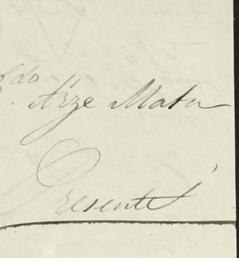 do Arze Mata
Presente